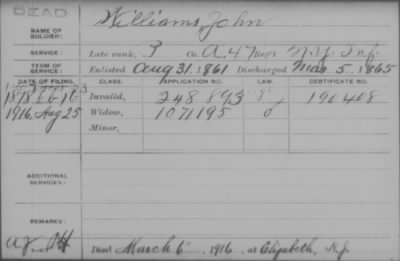 DEAD
NAME OF SOLDIER: Williams, John
SERVICE: Late rank, P Co. A, 47 Reg't N.Y. Inf.
TERM OF SERVICE: Enlisted Aug 31, 1861 Discharged Mar 5, 1865
DATE OF FILING. CLASS. APPLICATION NO. LAW. CERTIFICATE NO.
1878 Invalid, 248 893 190408
1916, Aug 25 Widow, 1071195
Minor,
ADDITIONAL SERVICES:
REMARKS:
Died March 6", 1916, at Elizabeth, N.J.